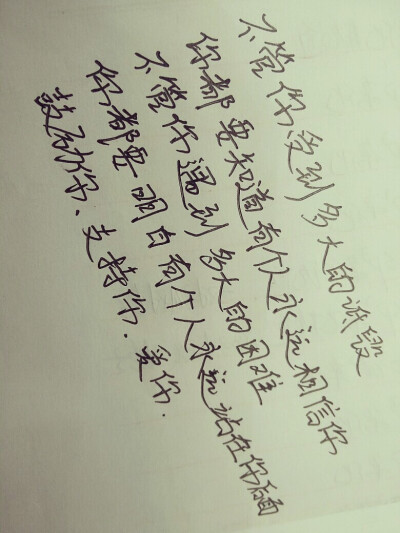 不管你受到多大的诋毁
你都要知道有个人永远相信你
不管你遇到多大的困难
你都要明白有个人永远站在你后面
鼓励你.支持你.爱你.